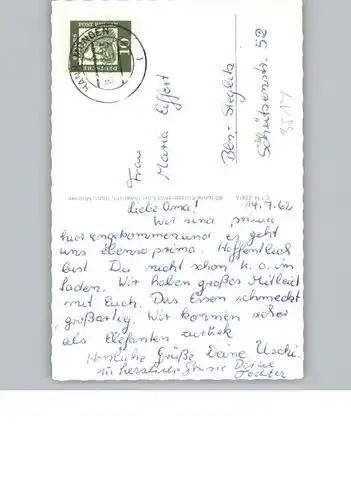 Frau
Maria Effert
Bln.-Steglitz
Schützenstr. 52
14.7.62
Liebe Oma!
Wir sind prima
hier angekommen und es geht
uns ebenso prima. Hoffentlich
bist Du nicht schon k.o. im
Laden. Wir haben großes Mitleid
mit Euch. Das Essen schmeckt
großartig. Wir kommen sicher
als Elefanten zurück
Herzliche Grüße Deine Uschi.
Deine
Tochter
DEUTSCHE
10